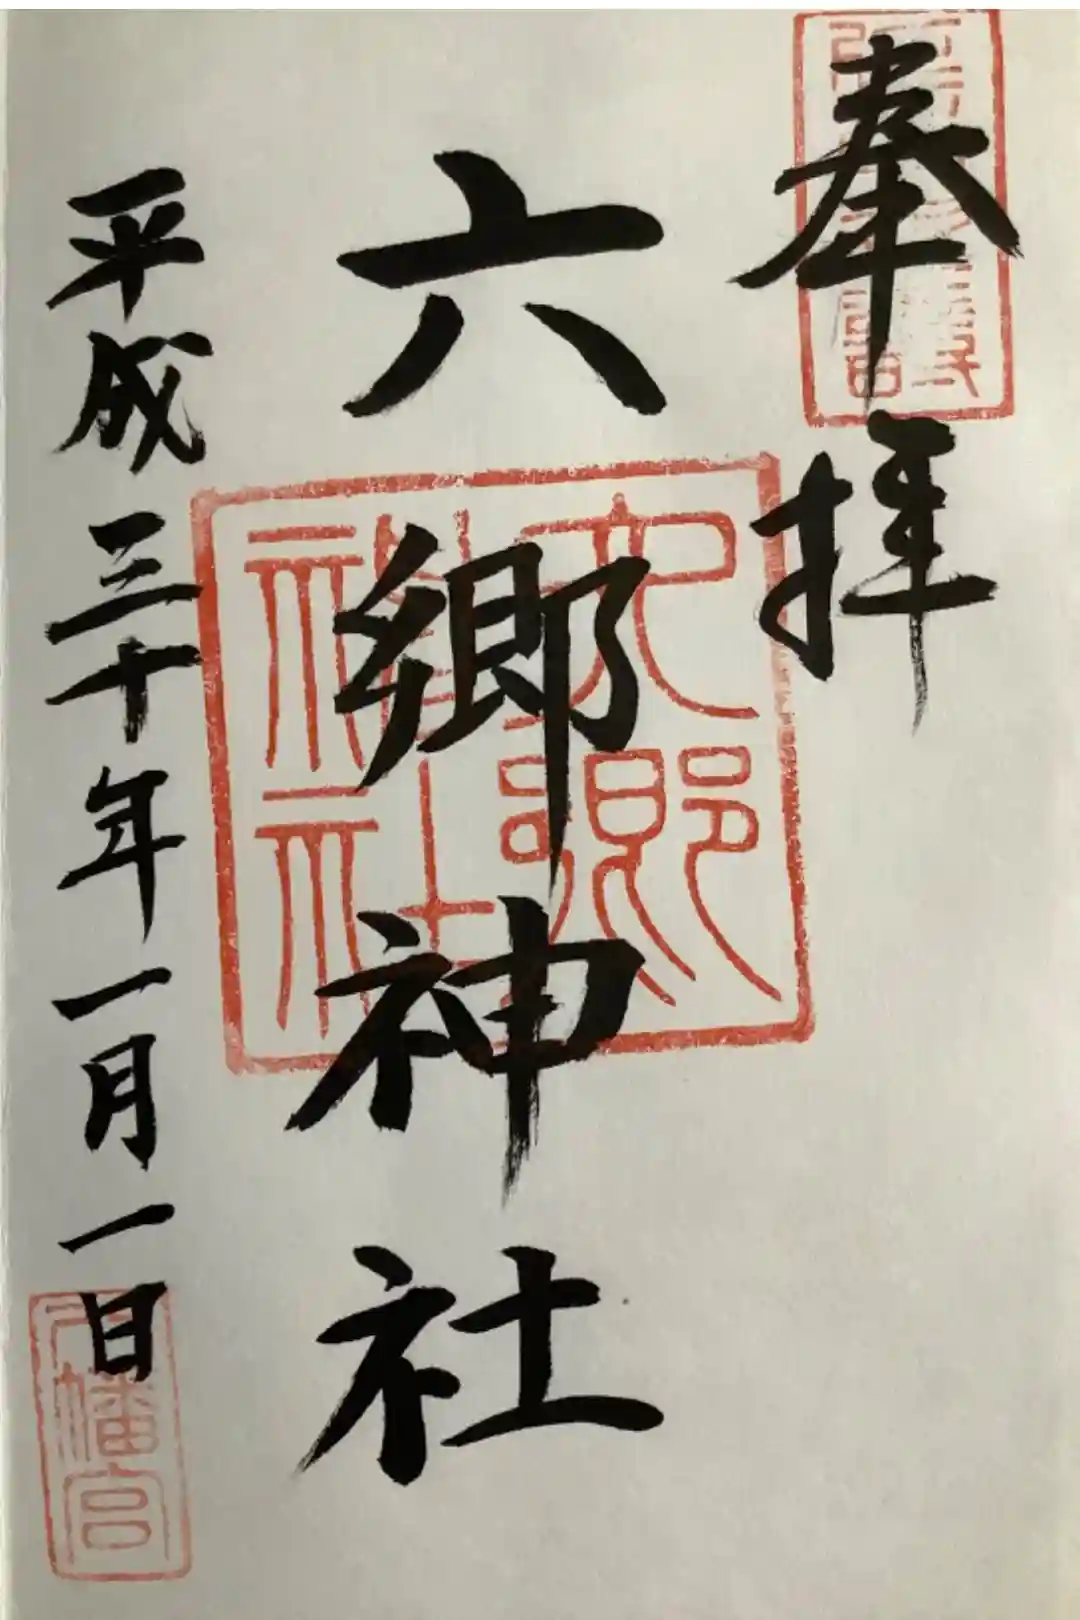 奉拝
六郷神社
六郷神社
平成三十年一月一日
八幡宮